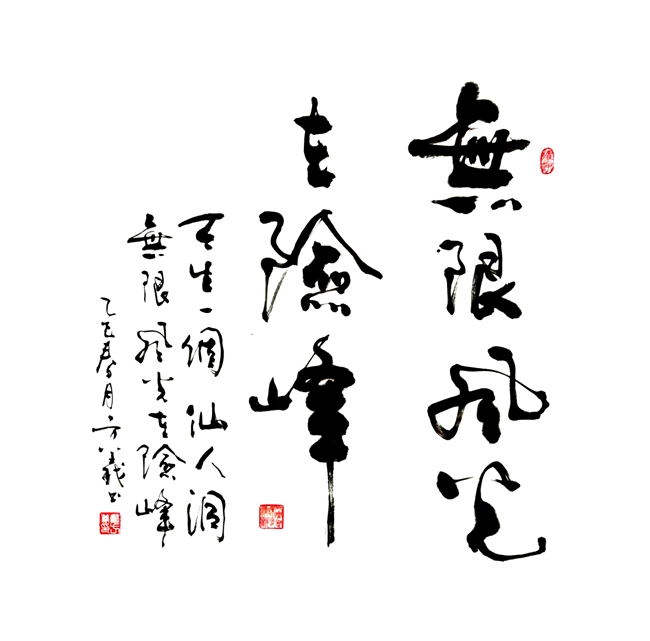 無限風光
在險峰
天生一個仙人洞
無限風光在險峰
乙巳春月方義书